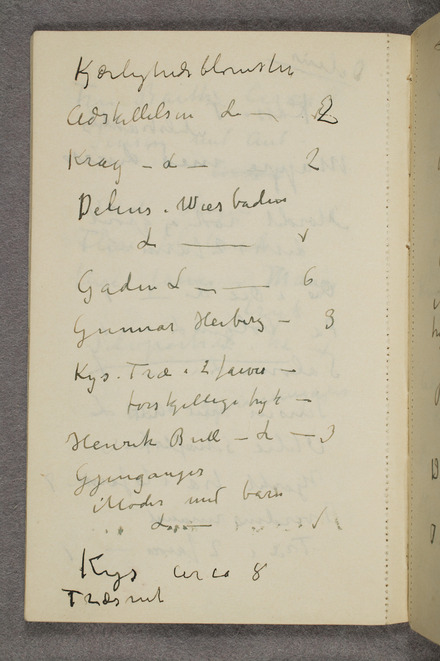 Kjærlighedsblomsten
Adskillelsen L — 2
Krag — L — 2
Delius. Wiesbaden
L —
Gaden L — — 6
Gunnar Heiberg — 3
Kys. Træ i 2 farver —
forskjellige tryk —
Henrik Bull — L — 3
Gjenganger
Moder med barn
L —
Kys circa 8
Træsnit